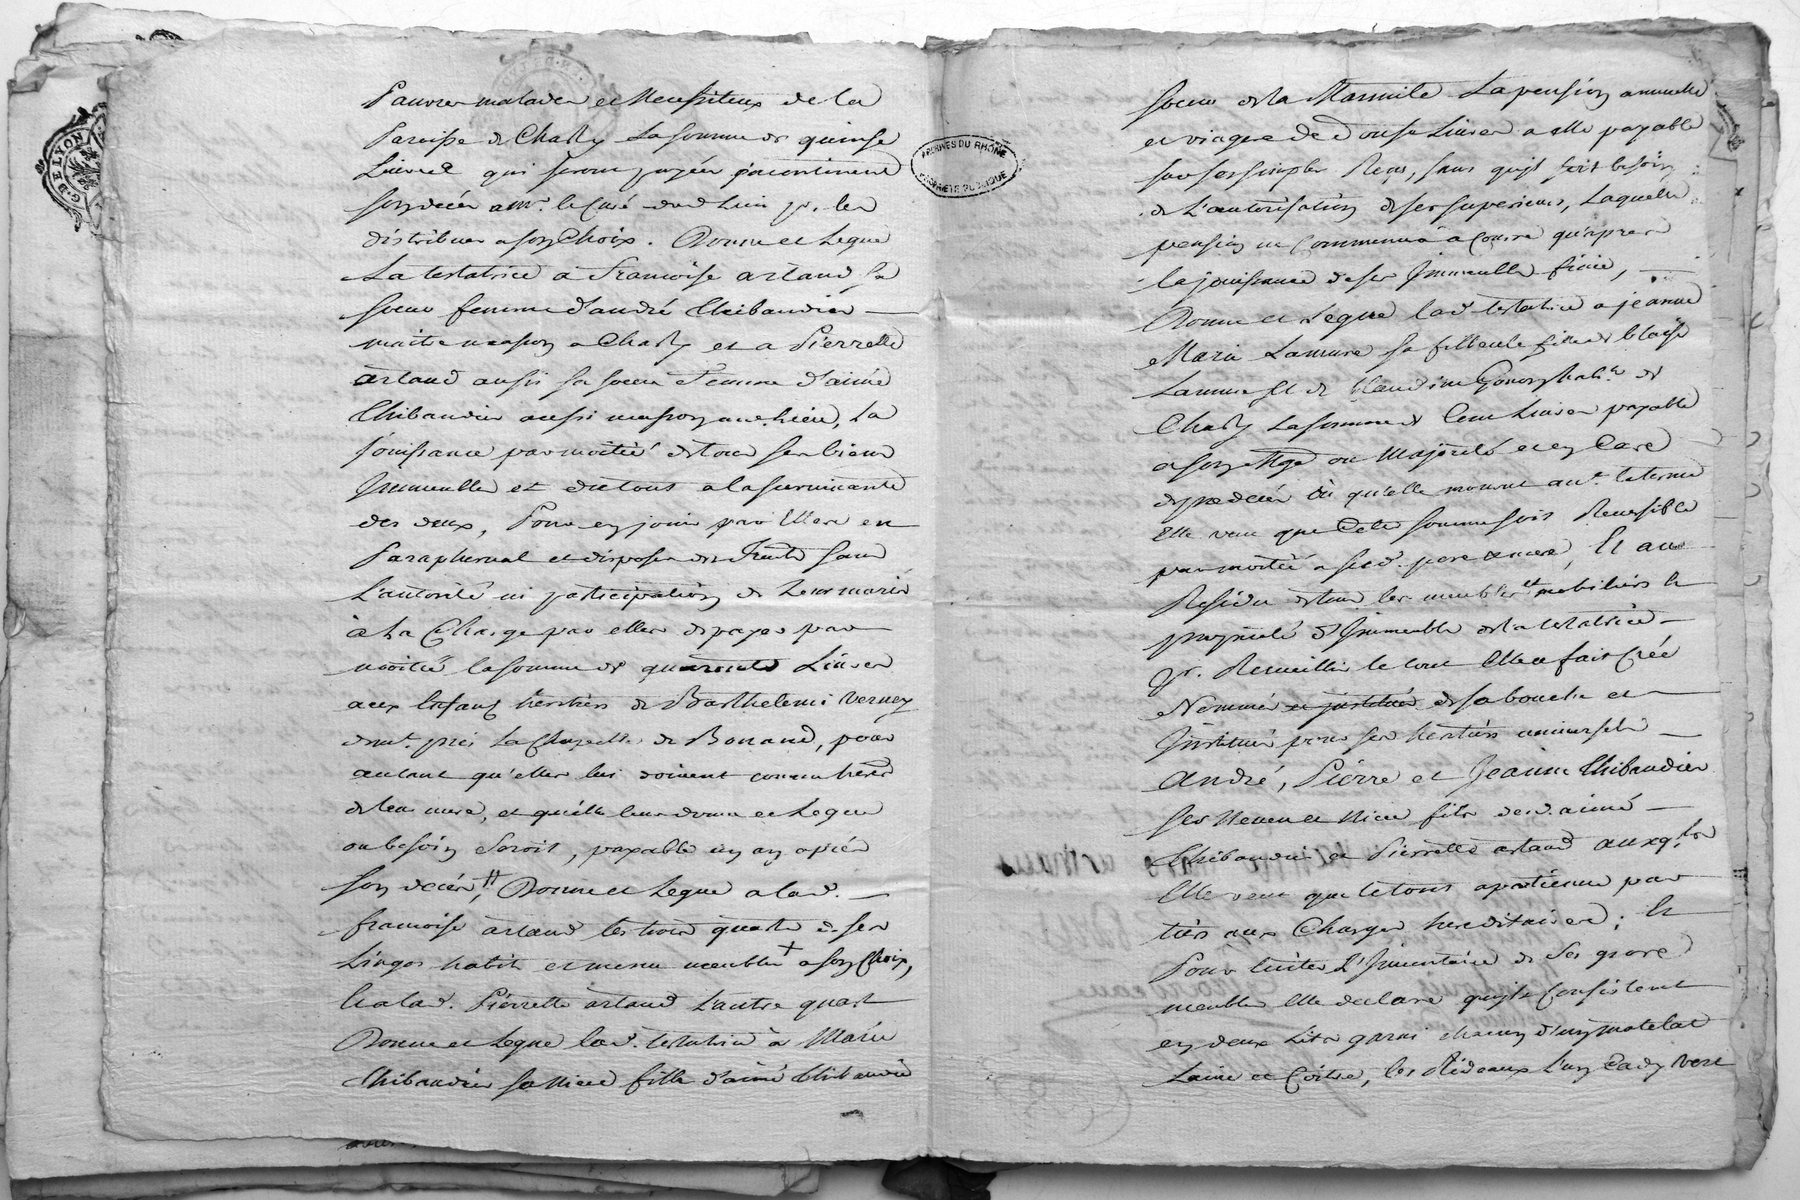 Pauvres malades et Necessiteux de la
Paroisse de Charly La somme de quinse
Livres qui seront payées incontinent
son décès a mr. le Curé dud Lieu pr. les
distribuer a son Choix. Donne et Legue
La testatrice a Francoise artaud sa
soeur femme d'andré Thibaudier
maitre masson a Charly et a Pierrette
artaud aussi sa soeur femme d'aimé
Thibaudier aussi masson aud. Lieu, La
jouissance par moitié de tous ses biens
Immeubles et du tout a la survivante
des deux, Pour en jouir par Elles en
Paraphernal et disposer des fruits sans
L'autorité ni participation de Leurs maris
à La Charge par elles de payer par
moitié la somme de quarante Livres
aux Enfans heritiers de Barthelemi Verney
demt. près La Chapelle de Bonand, pour
autant qu'elles lui doivent comme heres
de leur mere, et qu'elle leur donne et Legue
au besoin seroit, payable un an après
son decès, Donne et Legue a lad.
francoise artaud les trois quarts de ses
Linges habits et menu meubles a son Choix,
Et a lad. Pierrette artaud L'autre quart
Donne et Legue lad. testatrice à Marie
Thibaudier sa Niece fille d'aimé Thibaudier
soeur de la Marmite La pension annuelle
et viagere de Douse Livres a elle payable
sur ses simples Reçus, sans qu'il soit besoin
de L'autorisation de ses superieurs, Laquelle
pension ne Commencera a Courir qu'après
la jouissance de ses Immeubles finie,
Donne et Legue lad testatrice a jeanne
Marie Lamure sa filleule fille de blaise
Lamure et de Claudine habts. de
Charly La somme de Cent Livres payable
a son Age de Majorité et en Cas
de predeces où qu'elle mourut avt. le terme
Elle veut que Cete somme soit Reversible
par moitié a sesd. pere et mere, Et au
Residu de tous les meubles et mobiliers et
proprieté d'Immeubles de la testatrice
pr. Recueillir le tout Elle a fait Créé
Nommé et institué de sa bouche et
Institue pour ses heritiers universels
André, Pierre et Jeanne Thibaudier
ses Neveux et Niece fils desd. aimé
Thibaudier et Pierrette artaud auxqls
Elle veut que le tout apartienne par
tiers aux Charges hereditaires; Et
Pour eviter L'Inventaire de ses gros
meubles Elle declare qu'ils Consistent
en deux Lits garni chacun d'un matelat
Laine et Coitre, les Rideaux L'un Cady vert
G. DE LYON
ARCHIVES DU RHÔNE
PROPRIÉTÉ PUBLIQUE